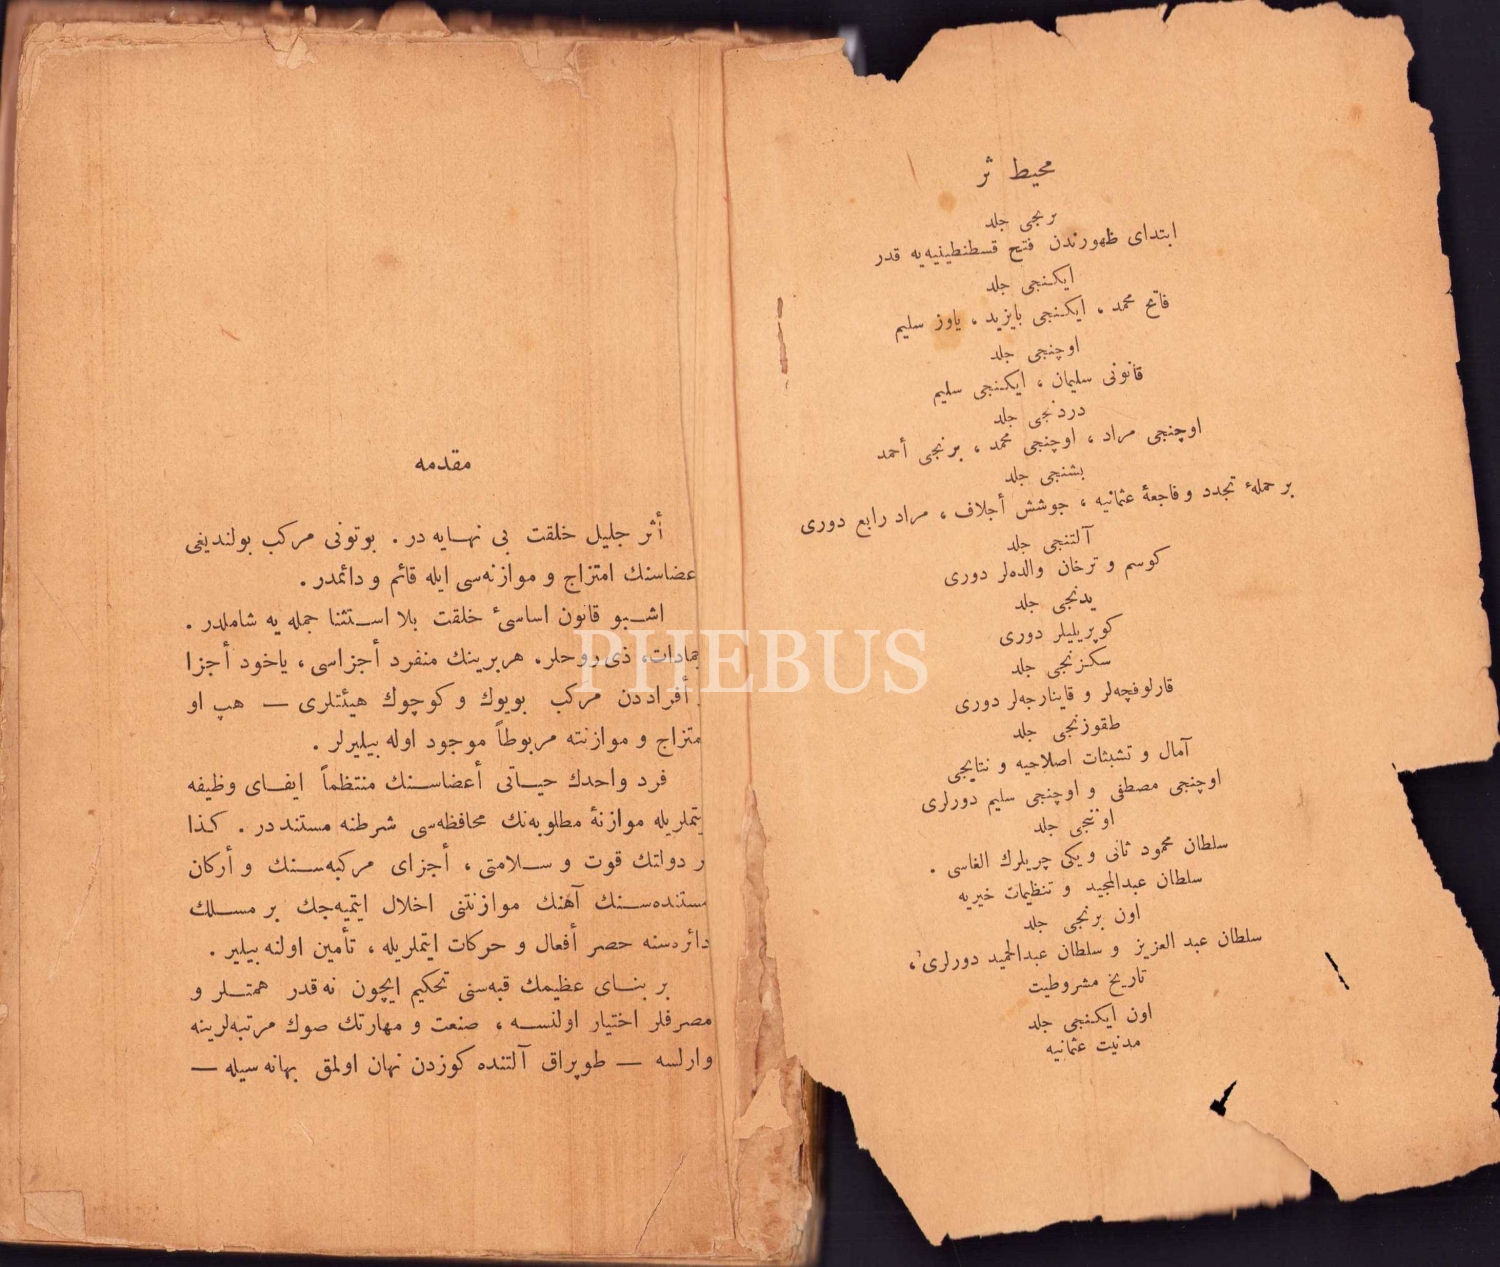 محيط ثر
برنجى جلد
ابتداى ظهورندن فتح قسطنطينيه‌يه قدر
ايكنجى جلد
فاتح محمد ، ايكنجى بايزيد ، ياوز سليم
اوچنجى جلد
قانونى سليمان ، ايكنجى سليم
دردنجى جلد
اوچنجى مراد ، اوچنجى محمد ، برنجى أحمد
بشنجى جلد
بر حملهٔ تجدد و فاجعهٔ عثمانيه ، جوشش أجلاف ، مراد رابع دورى
آلتنجى جلد
كوسم و ترخان والده‌لر دورى
يدنجى جلد
كوپريليلر دورى
سكزنجى جلد
قارلوفچه‌لر و قاينارجه‌لر دورى
طقوزنجى جلد
آمال و تشبثات اصلاحيه و نتايجى
اوچنجى مصطفى و اوچنجى سليم دورلرى
اوننجى جلد
سلطان محمود ثانى و يكى چريلرك الغاسى .
سلطان عبدالمجيد و تنظيمات خيريه
اون برنجى جلد
سلطان عبد العزيز و سلطان عبدالحميد دورلرى ،
تاريخ مشروطيت
اون ايكنجى جلد
مدنيت عثمانيه
مقدمه
أثر جليل خلقت بى نهايه در . بوتونى مركب بولنديغى
عضاسنك امتزاج و موازنه‌سى ايله قائم و دائمدر .
اشبو قانون اساسئ خلقت بلا استثنا جمله يه شاملدر .
جمادات، ذى روحلر. هربرينك منفرد أجزاسى ، ياخود أجزا
أفراددن مركب بويوك و كوچوك هيئتلرى — هپ او
متزاج و موازنته مربوطاً موجود اوله بيليرلر .
فرد واحدك حياتى أعضاسنك منتظماً ايفاى وظيفه
يتملريله موازنهٔ مطلوبه‌نك محافظه‌سى شرطنه مستنددر . كذا
ر دولتك قوت و سلامتى ، أجزاى مركبه‌سنك و أركان
مستنده‌سنك آهنك موازنتنى اخلال ايتميه‌جك بر مسلك
دائره‌سنه حصر أفعال و حركات ايتملريله ، تأمين اولنه بيلير .
بر بناى عظيمك قبه‌سنى تحكيم ايچون نه قدر همتلر و
مصرفلر اختيار اولنسه ، صنعت و مهارتك صوك مرتبه‌لرينه
وارلسه — طوپراق آلتنده كوزدن نهان اولمق بهانه سيله —
PHEBUS